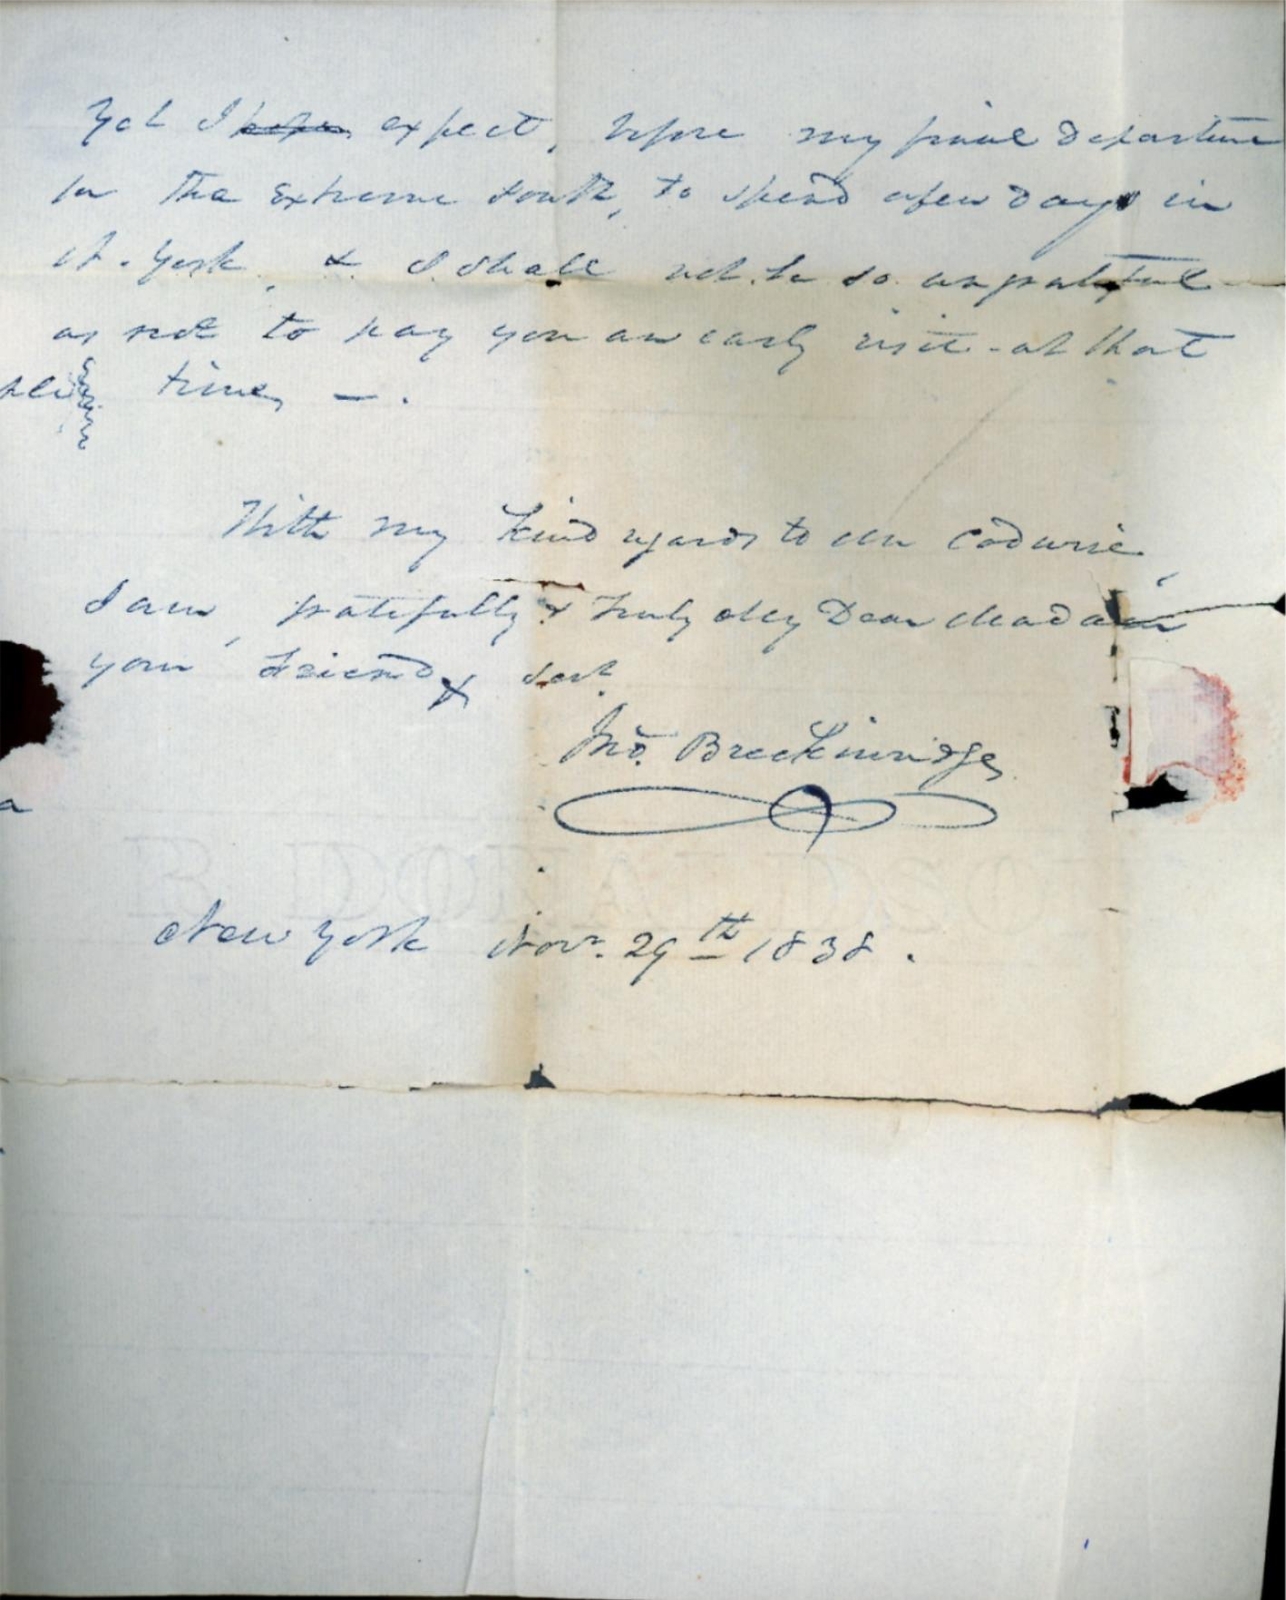 Yet I hope expect, before my final departure
for the extreme South, to spend a few days in
N. York, & I shall not be so ungrateful
as not to pay you an early visit at that
time, — .
With my kind regards to Mr Codwise,
I am, gratefully & truly My Dear Madam
your friend & Servt
Jno. Breckinridge
New York Novr. 29th 1838.